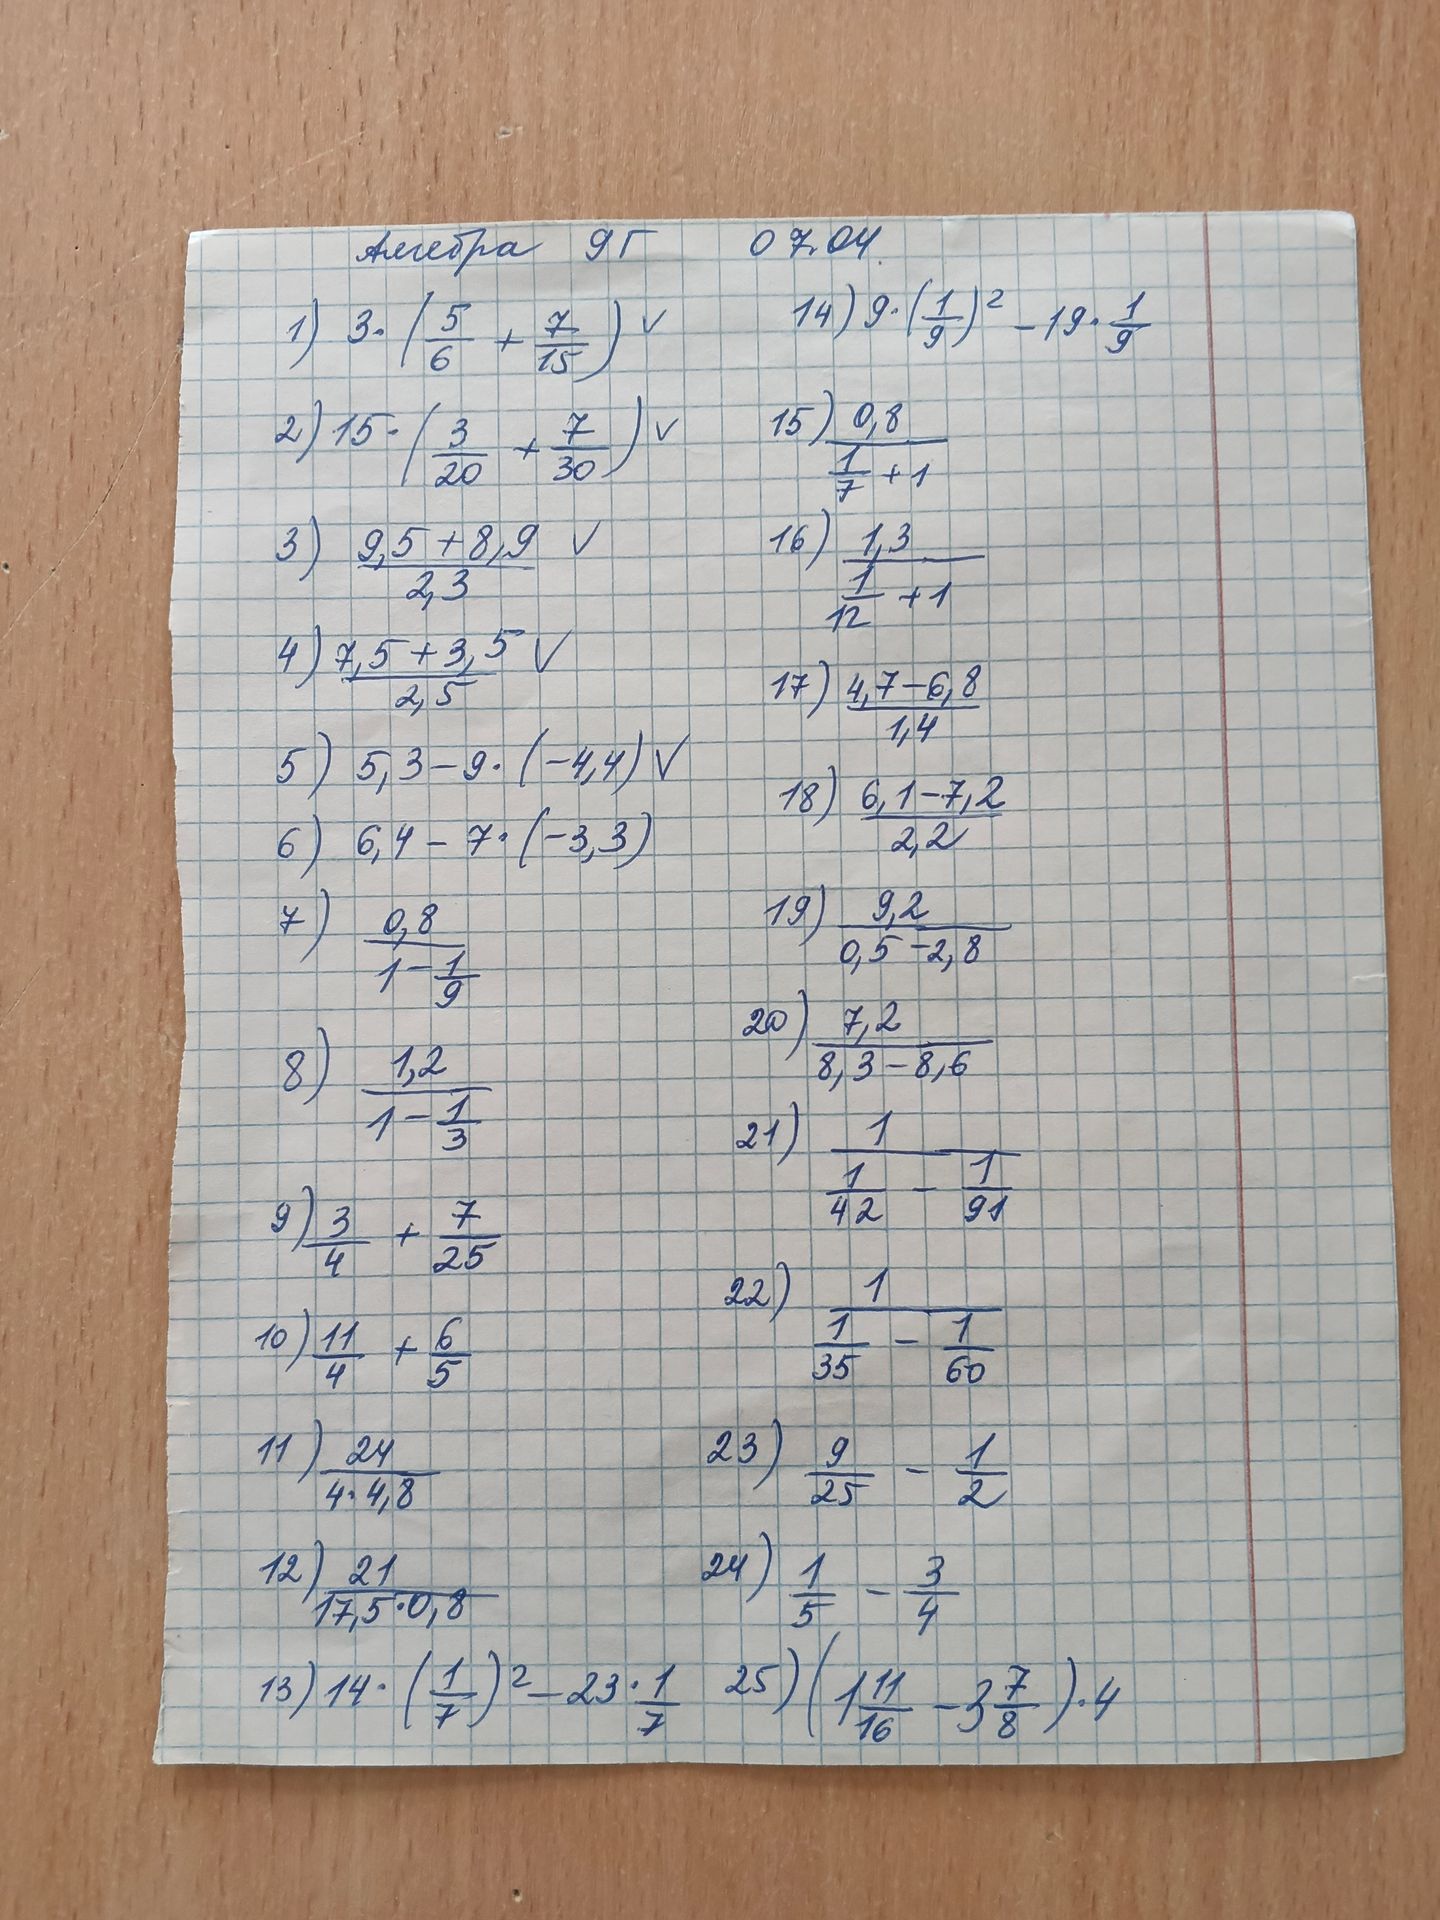 Алгебра 9Г 07.04.
1) 3·(5/6 + 7/15) ✓
2) 15·(3/20 + 7/30) ✓
3) (9,5+8,9)/2,3 ✓
4) (7,5+3,5)/2,5 ✓
5) 5,3-9·(-4,4) ✓
6) 6,4-7·(-3,3)
7) 0,8/(1-1/9)
8) 1,2/(1-1/3)
9) 3/4 + 7/25
10) 11/4 + 6/5
11) 24/(4·4,8)
12) 21/(17,5·0,8)
13) 14·(1/7)²-23·1/7
14) 9·(1/9)²-19·1/9
15) 0,8/(1/7+1)
16) 1,3/(1/12+1)
17) (4,7-6,8)/1,4
18) (6,1-7,2)/2,2
19) 9,2/(0,5-2,8)
20) 7,2/(8,3-8,6)
21) 1/(1/42 - 1/91)
22) 1/(1/35 - 1/60)
23) 9/25 - 1/2
24) 1/5 - 3/4
25) (1 11/16 - 3 7/8)·4